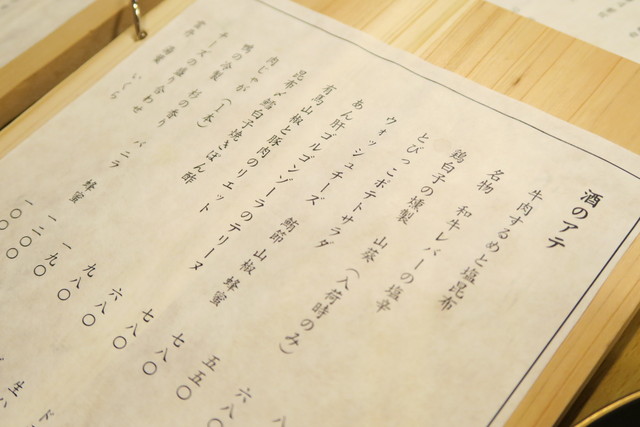 酒のアテ
牛肉するめと塩昆布
名物 和牛レバーの塩辛
鶏白子の燻製 山葵(入荷時のみ)
とびっこポテトサラダ
ウォッシュチーズ 鮪節 山椒 蜂蜜
あん肝ゴルゴンゾーラのテリーヌ
有馬山椒と豚肉のリエット
昆布〆鱈白子焼きぽん酢
肉じゃが(1本)
鴨の冷製 杉の香り
チーズの盛り合わせ バニラ 蜂蜜
いくら
六八〇
五五〇
七八〇
七八〇
六八〇
九八〇
一九〇
一二〇〇
一〇〇〇